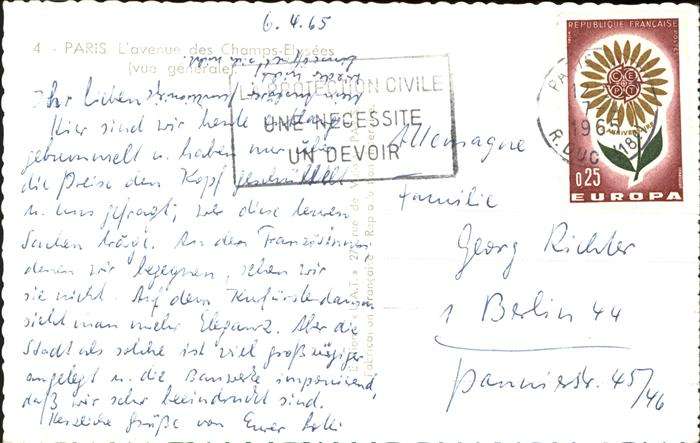 6.4.65
4 - PARIS L'avenue des Champs-Elysées
(vue générale)
Ihr Lieben
Hier sind wir heute
gebummelt u. haben nur über
die Preise den Kopf geschüttelt
u. uns gefragt, wer diese teuren
Sachen trägt. An den Französinnen
denen wir begegnen, sehen wir
sie nicht. Auf dem Kurfürstendamm
sieht man mehr Eleganz. Aber die
Stadt als solche ist viel großzügiger
angelegt u. die Bauwerke imponierend,
daß wir sehr beeindruckt sind.
Herzliche Grüße von Eurer
LA PROTECTION CIVILE
UNE NECESSITE
UN DEVOIR
REPUBLIQUE FRANÇAISE
ANNIVERSAIRE
0,25
EUROPA
PARIS
R. DUC
Allemagne
Familie
Georg Richter
1 Berlin 44
Pannierstr. 45/46